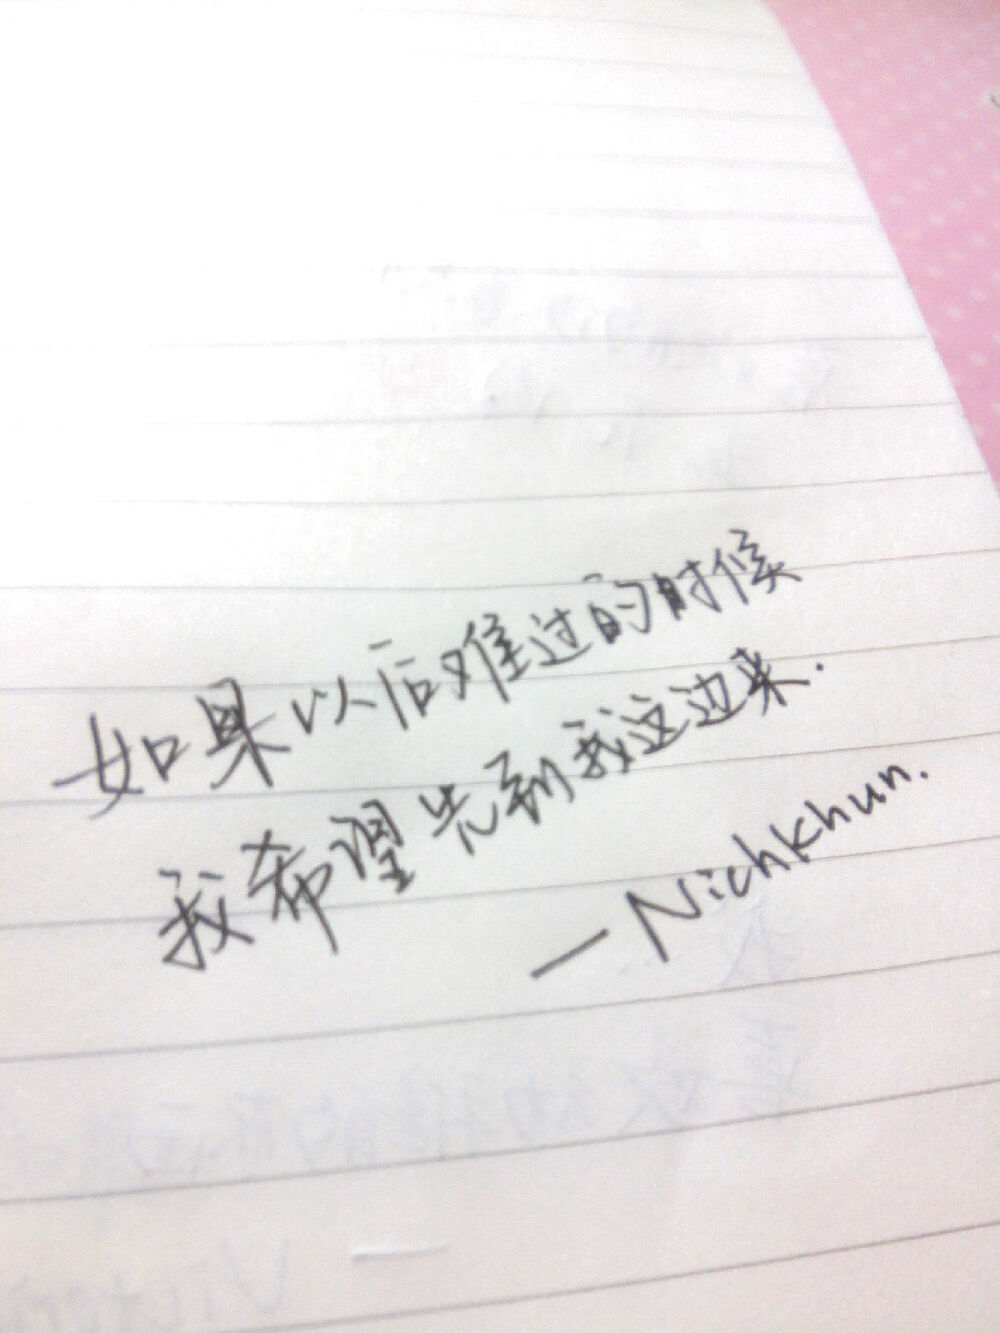 如果以后难过的时候
我希望先到我这边来.
一Nichkhun.